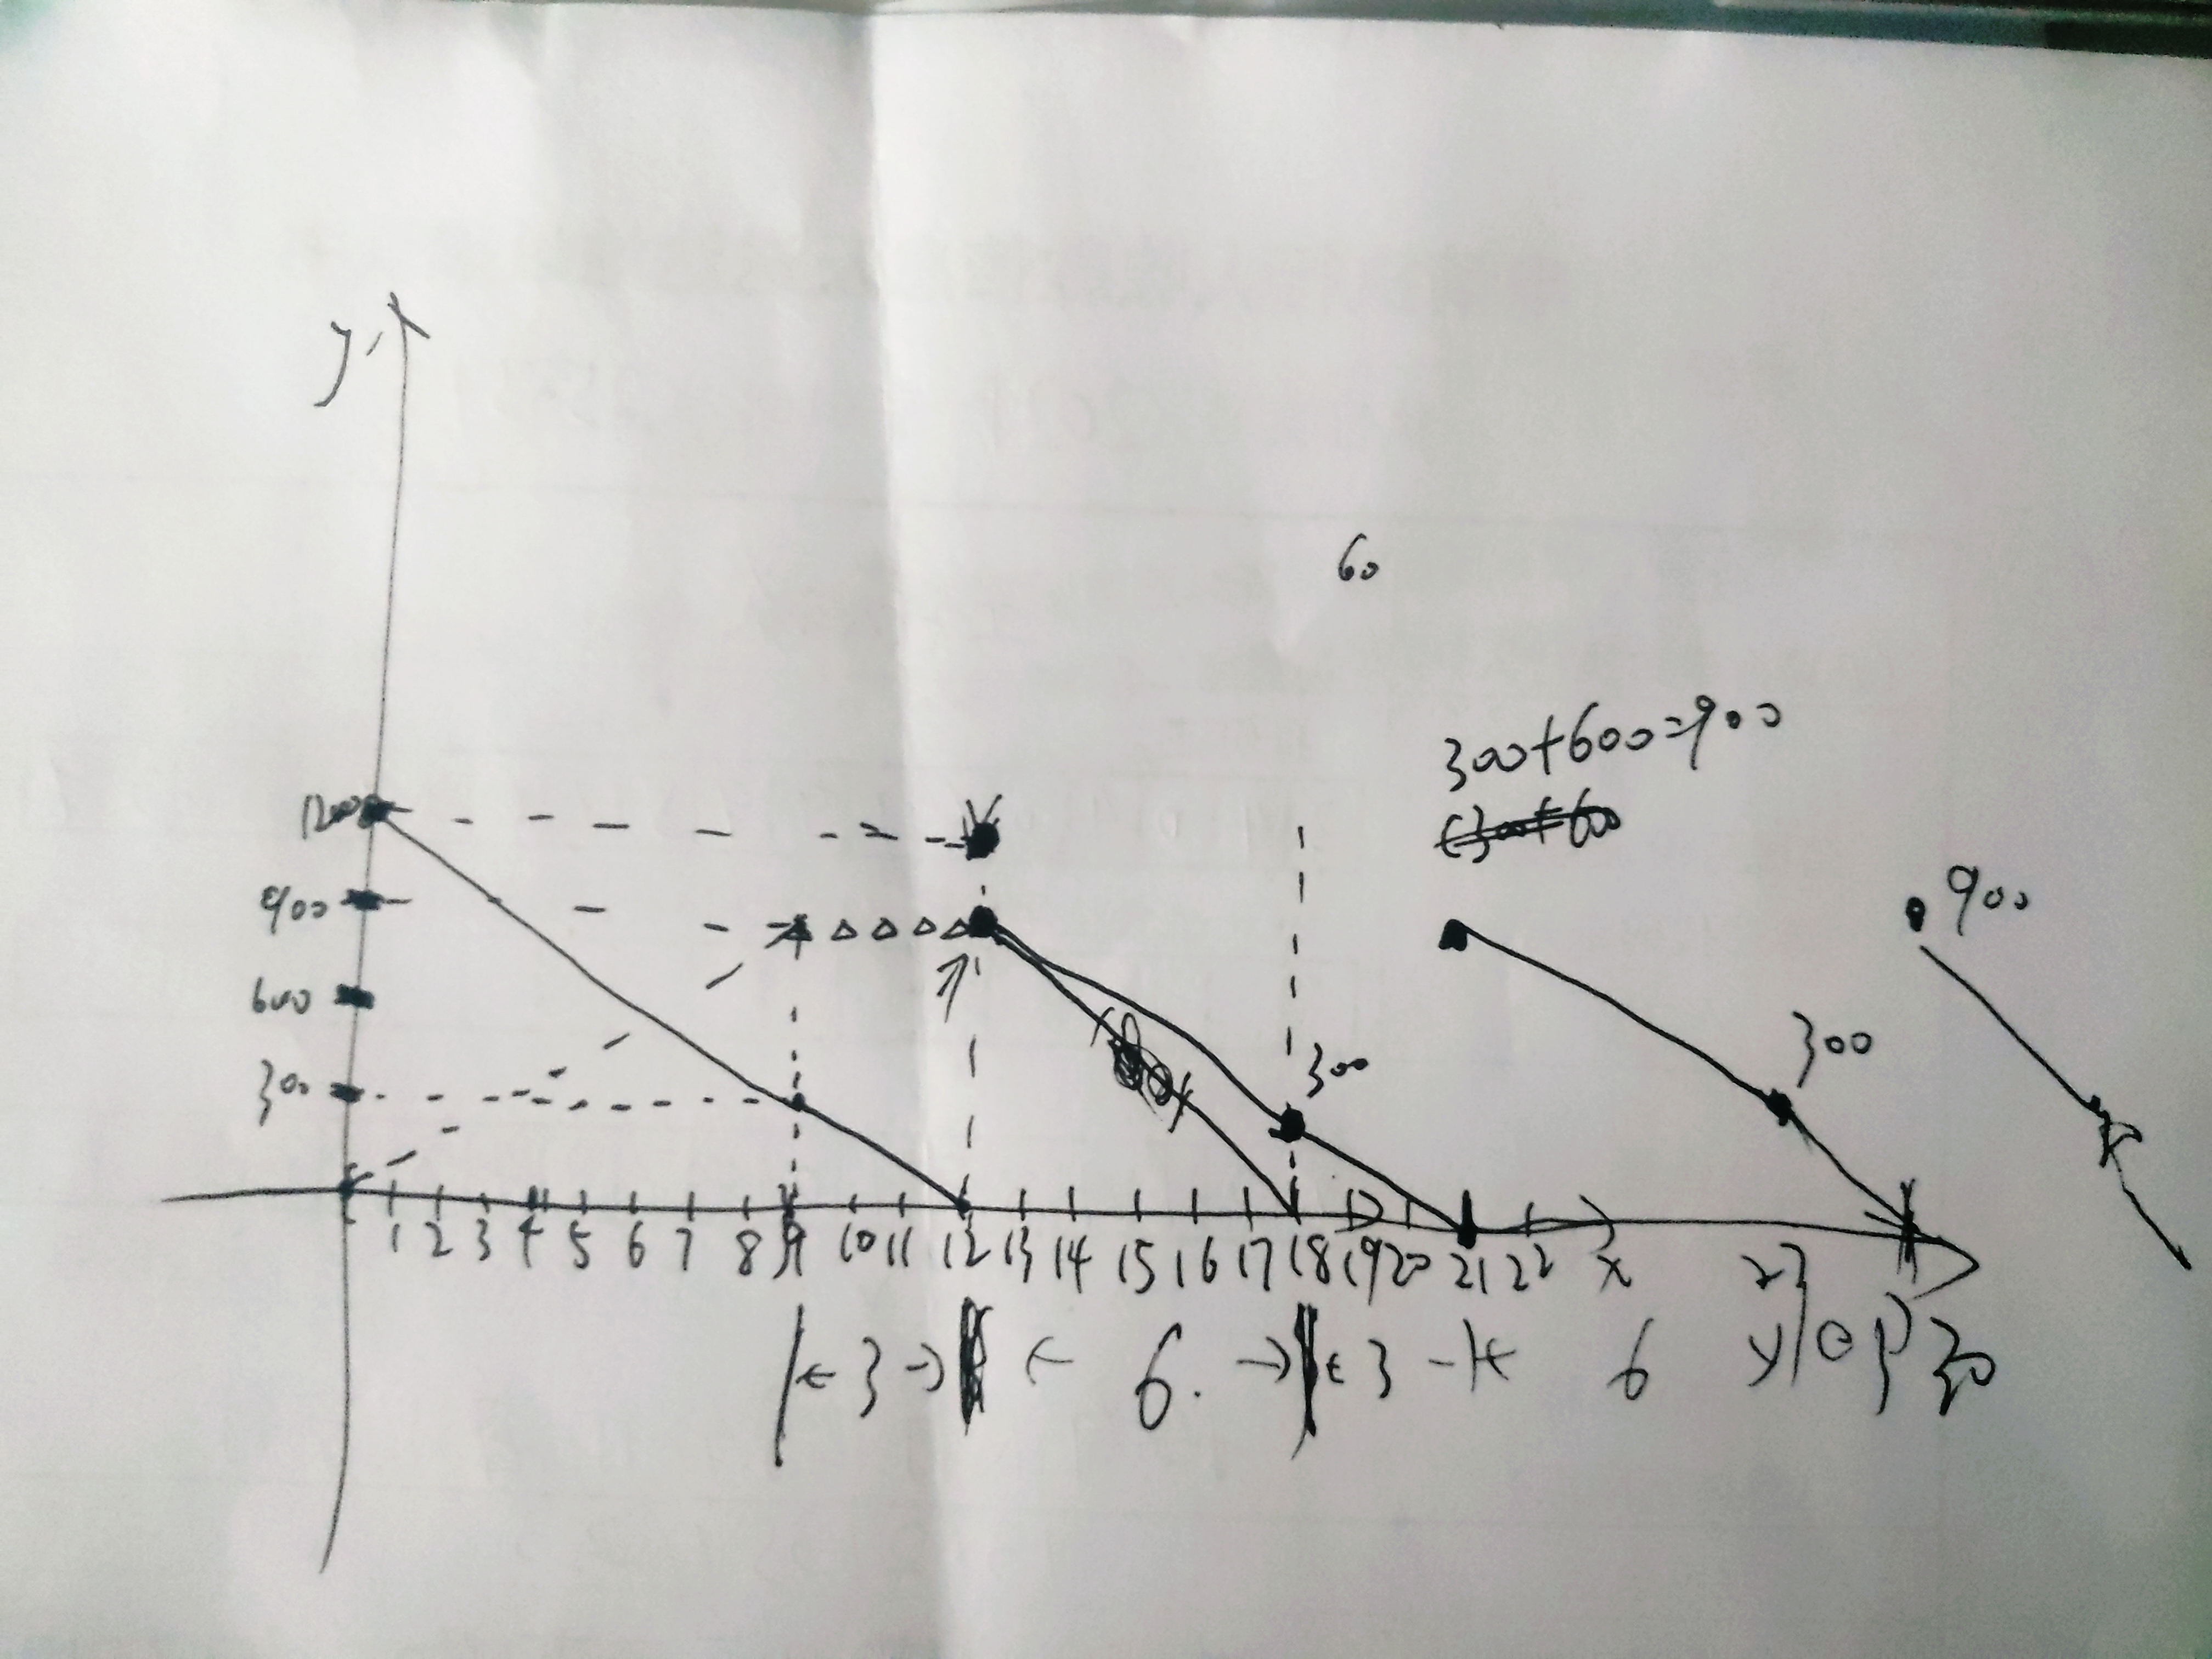 y
60
300+600=900
1200
900
900
600
300
300
300
1 2 3 4 5 6 7 8 9 10 11 12 13 14 15 16 17 18 19 20 21 22 x 27
3 6. 3 6 30